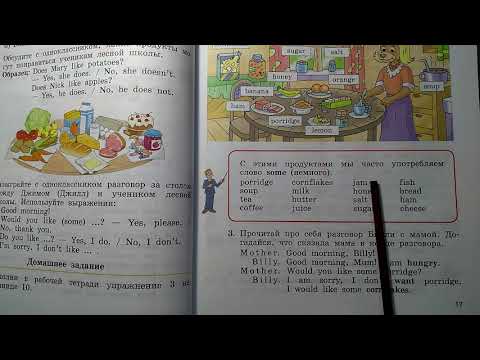 Обсудите с одноклассником, какие продукты мо-
гут понравиться ученикам лесной школы.
Образец: Does Mary like potatoes?
— Yes, she does. / No, she doesn't.
Does Nick like apples?
— Yes, he does. / No, he does not.
разговор за столом
между Джимом (Джилл) и учеником лесной
школы. Используйте выражения:
Good morning!
Would you like (some) ...? — Yes, please.
No, thank you.
Do you like ...? — Yes, I do. / No, I don't.
I'm sorry, I don't like ... .
Домашнее задание
в рабочей тетради упражнение 3 на
странице 10.
sugar
salt
honey
orange
banana
soup
ham
porridge
lemon
С этими продуктами мы часто употребляем
слово some (немного).
porridge cornflakes jam fish
soup milk honey bread
tea butter salt ham
coffee juice sugar cheese
3. Прочитай про себя разговор Билли с мамой. До-
гадайся, что сказала мама в конце разговора.
Mother. Good morning, Billy!
Billy. Good morning, Mum! I am hungry.
Mother. Would you like some porridge?
Billy. I am sorry, I don't want porridge.
I would like some cornflakes.
17